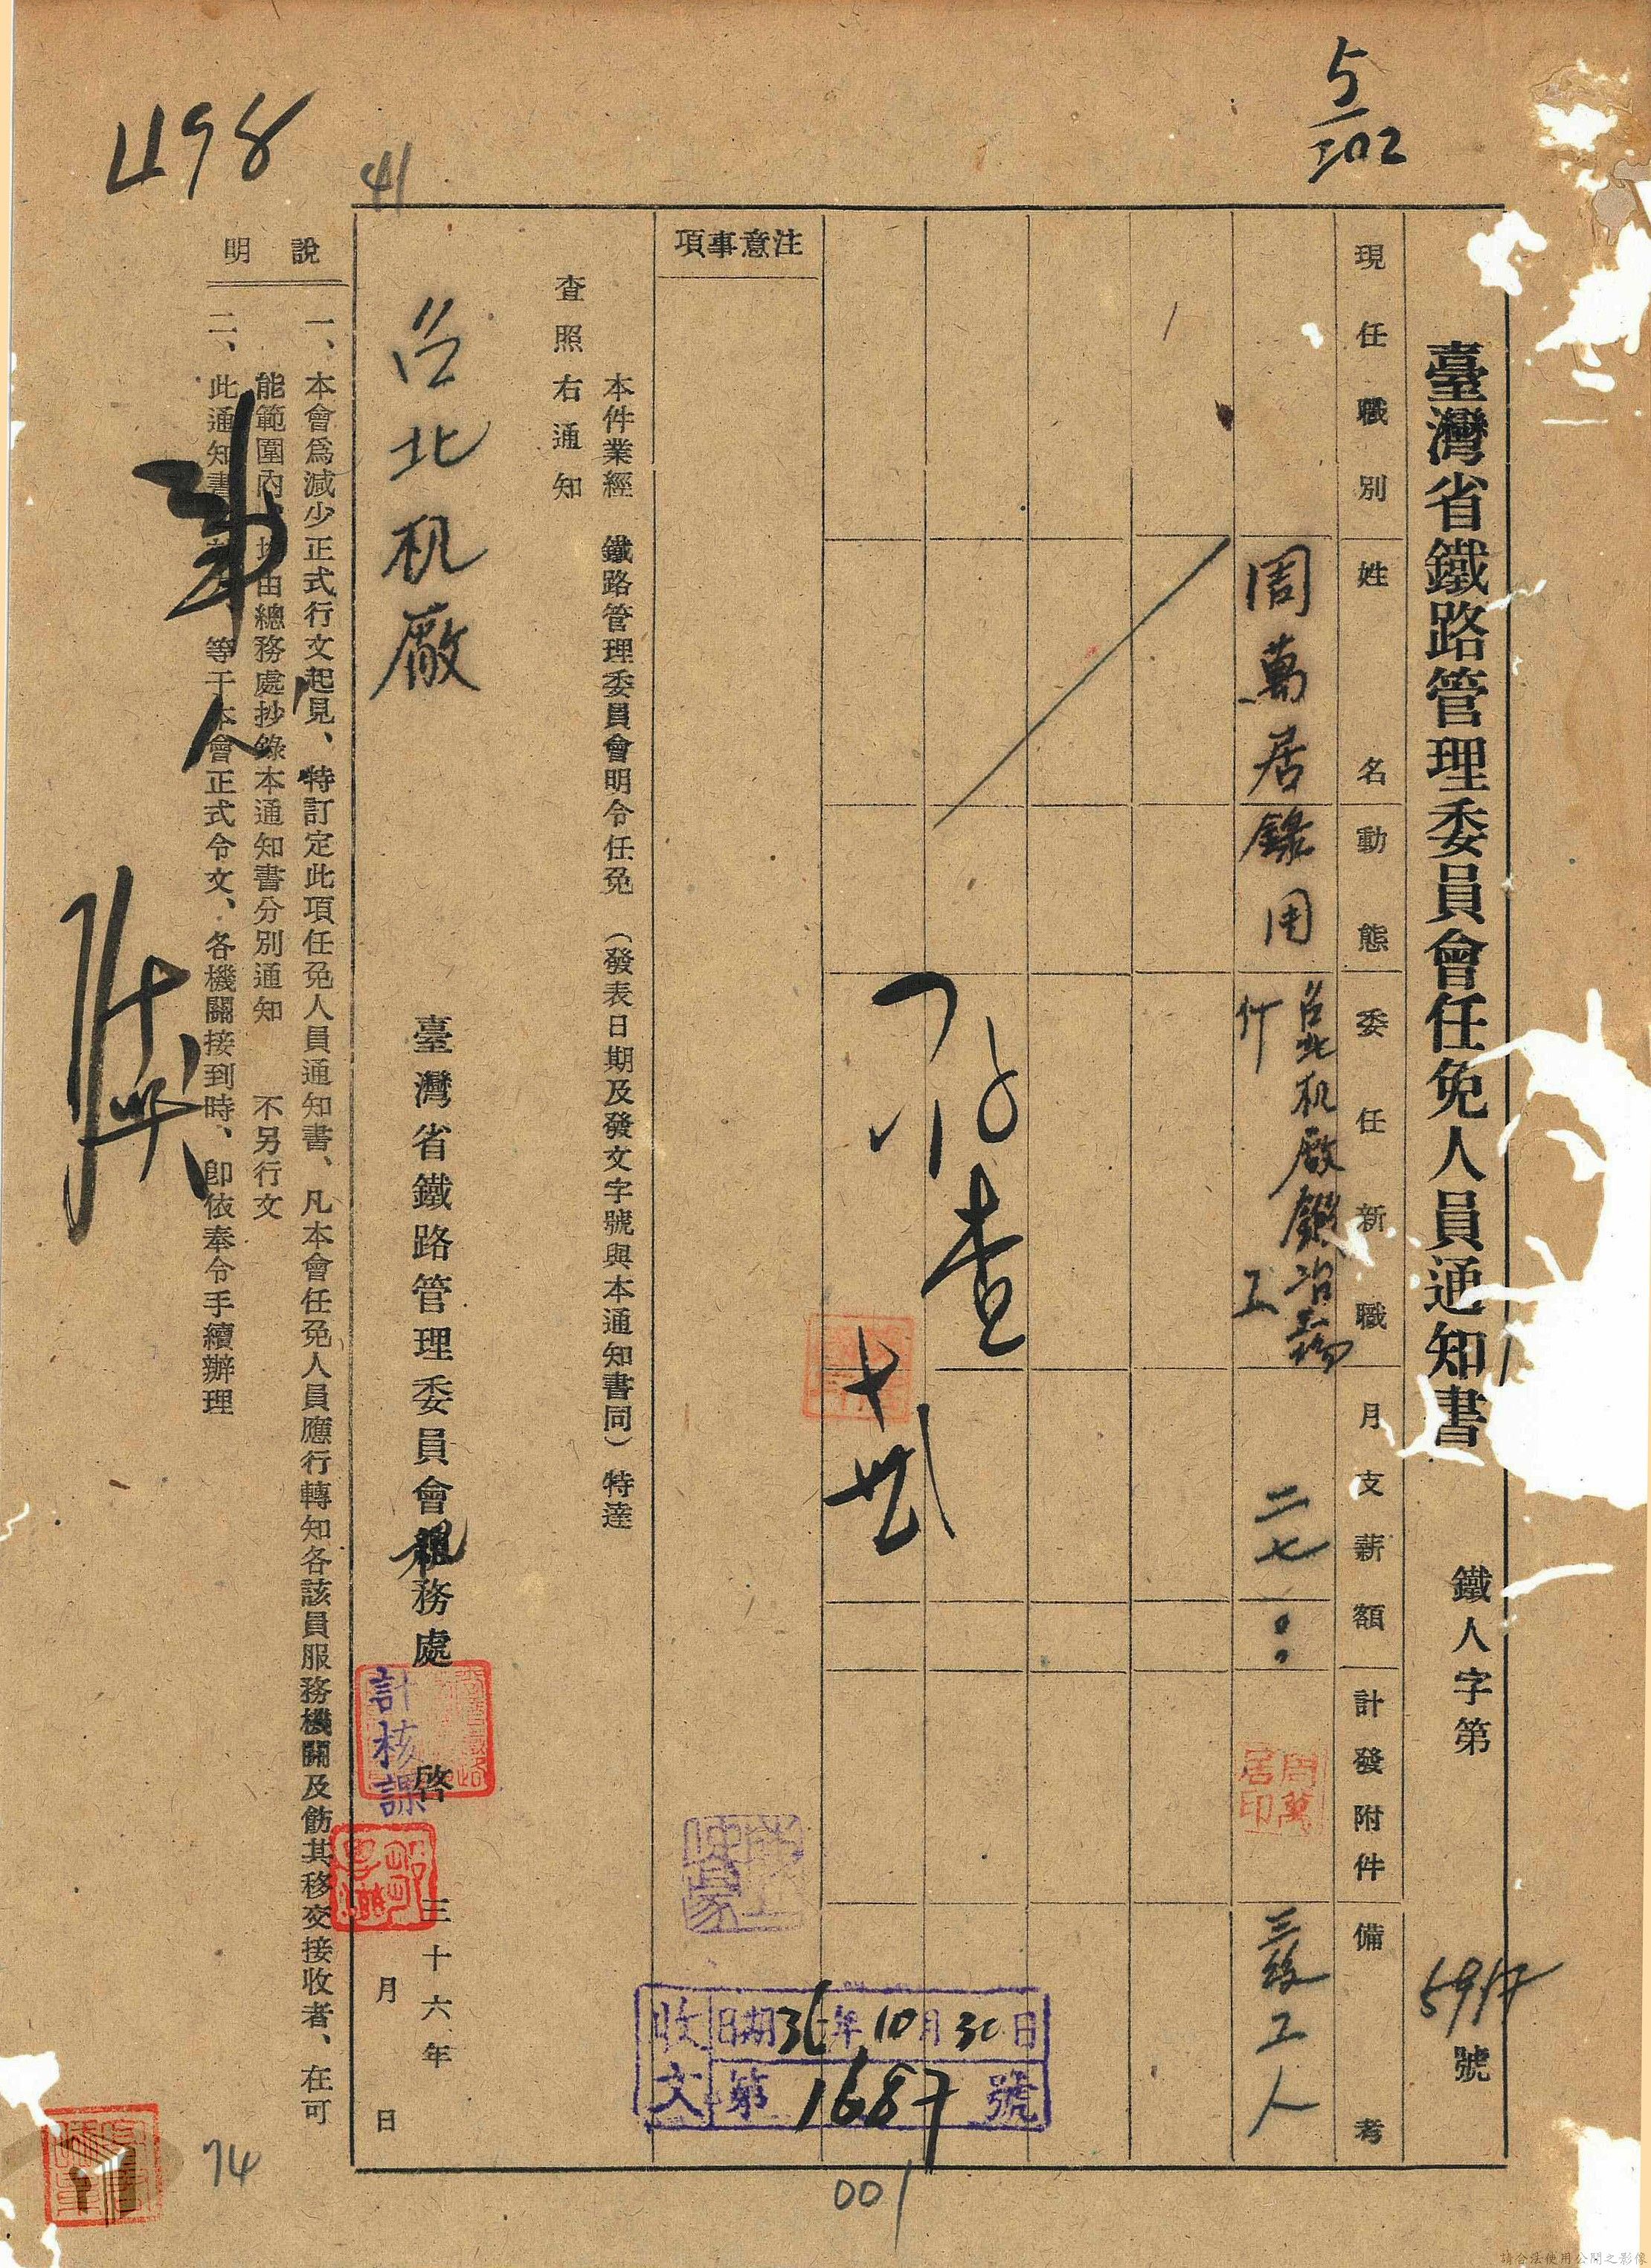 5/202
498
41
臺灣省鐵路管理委員會任免人員通知書
鐵人字第 5917 號
現任職別
姓名
動態
委任新職
月支薪額
計發附件
備考
周萬居
錄用
台北机廠鍛冶工場
工
二七
周萬居印
三級工人
注意事項
本件業經 鐵路管理委員會明令任免(發表日期及發文字號與本通知書同)特達
查照右通知
台北机廠
臺灣省鐵路管理委員會
務處
啓
計核課
三十六年
月
日
收文
日期36年10月30日
第1687號
說明
一、本會爲減少正式行文起見、特訂定此項任免人員通知書、凡本會任免人員應行轉知各該員服務機關及飭其移交接收者、在可
能範圍內 由總務處抄錄本通知書分別通知 不另行文
二、此通知書 等于本會正式令文、各機關接到時、卽依奉令手續辦理
查
74
001
請合法使用公開之影像